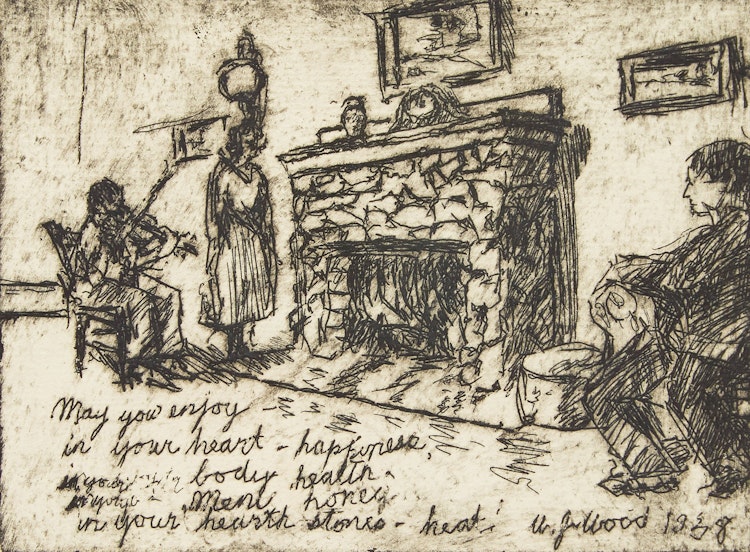 May you enjoy -
in your heart - happiness,
in your body health
in your Menu honey
in your hearth stones - heat! W. J. Wood 1938